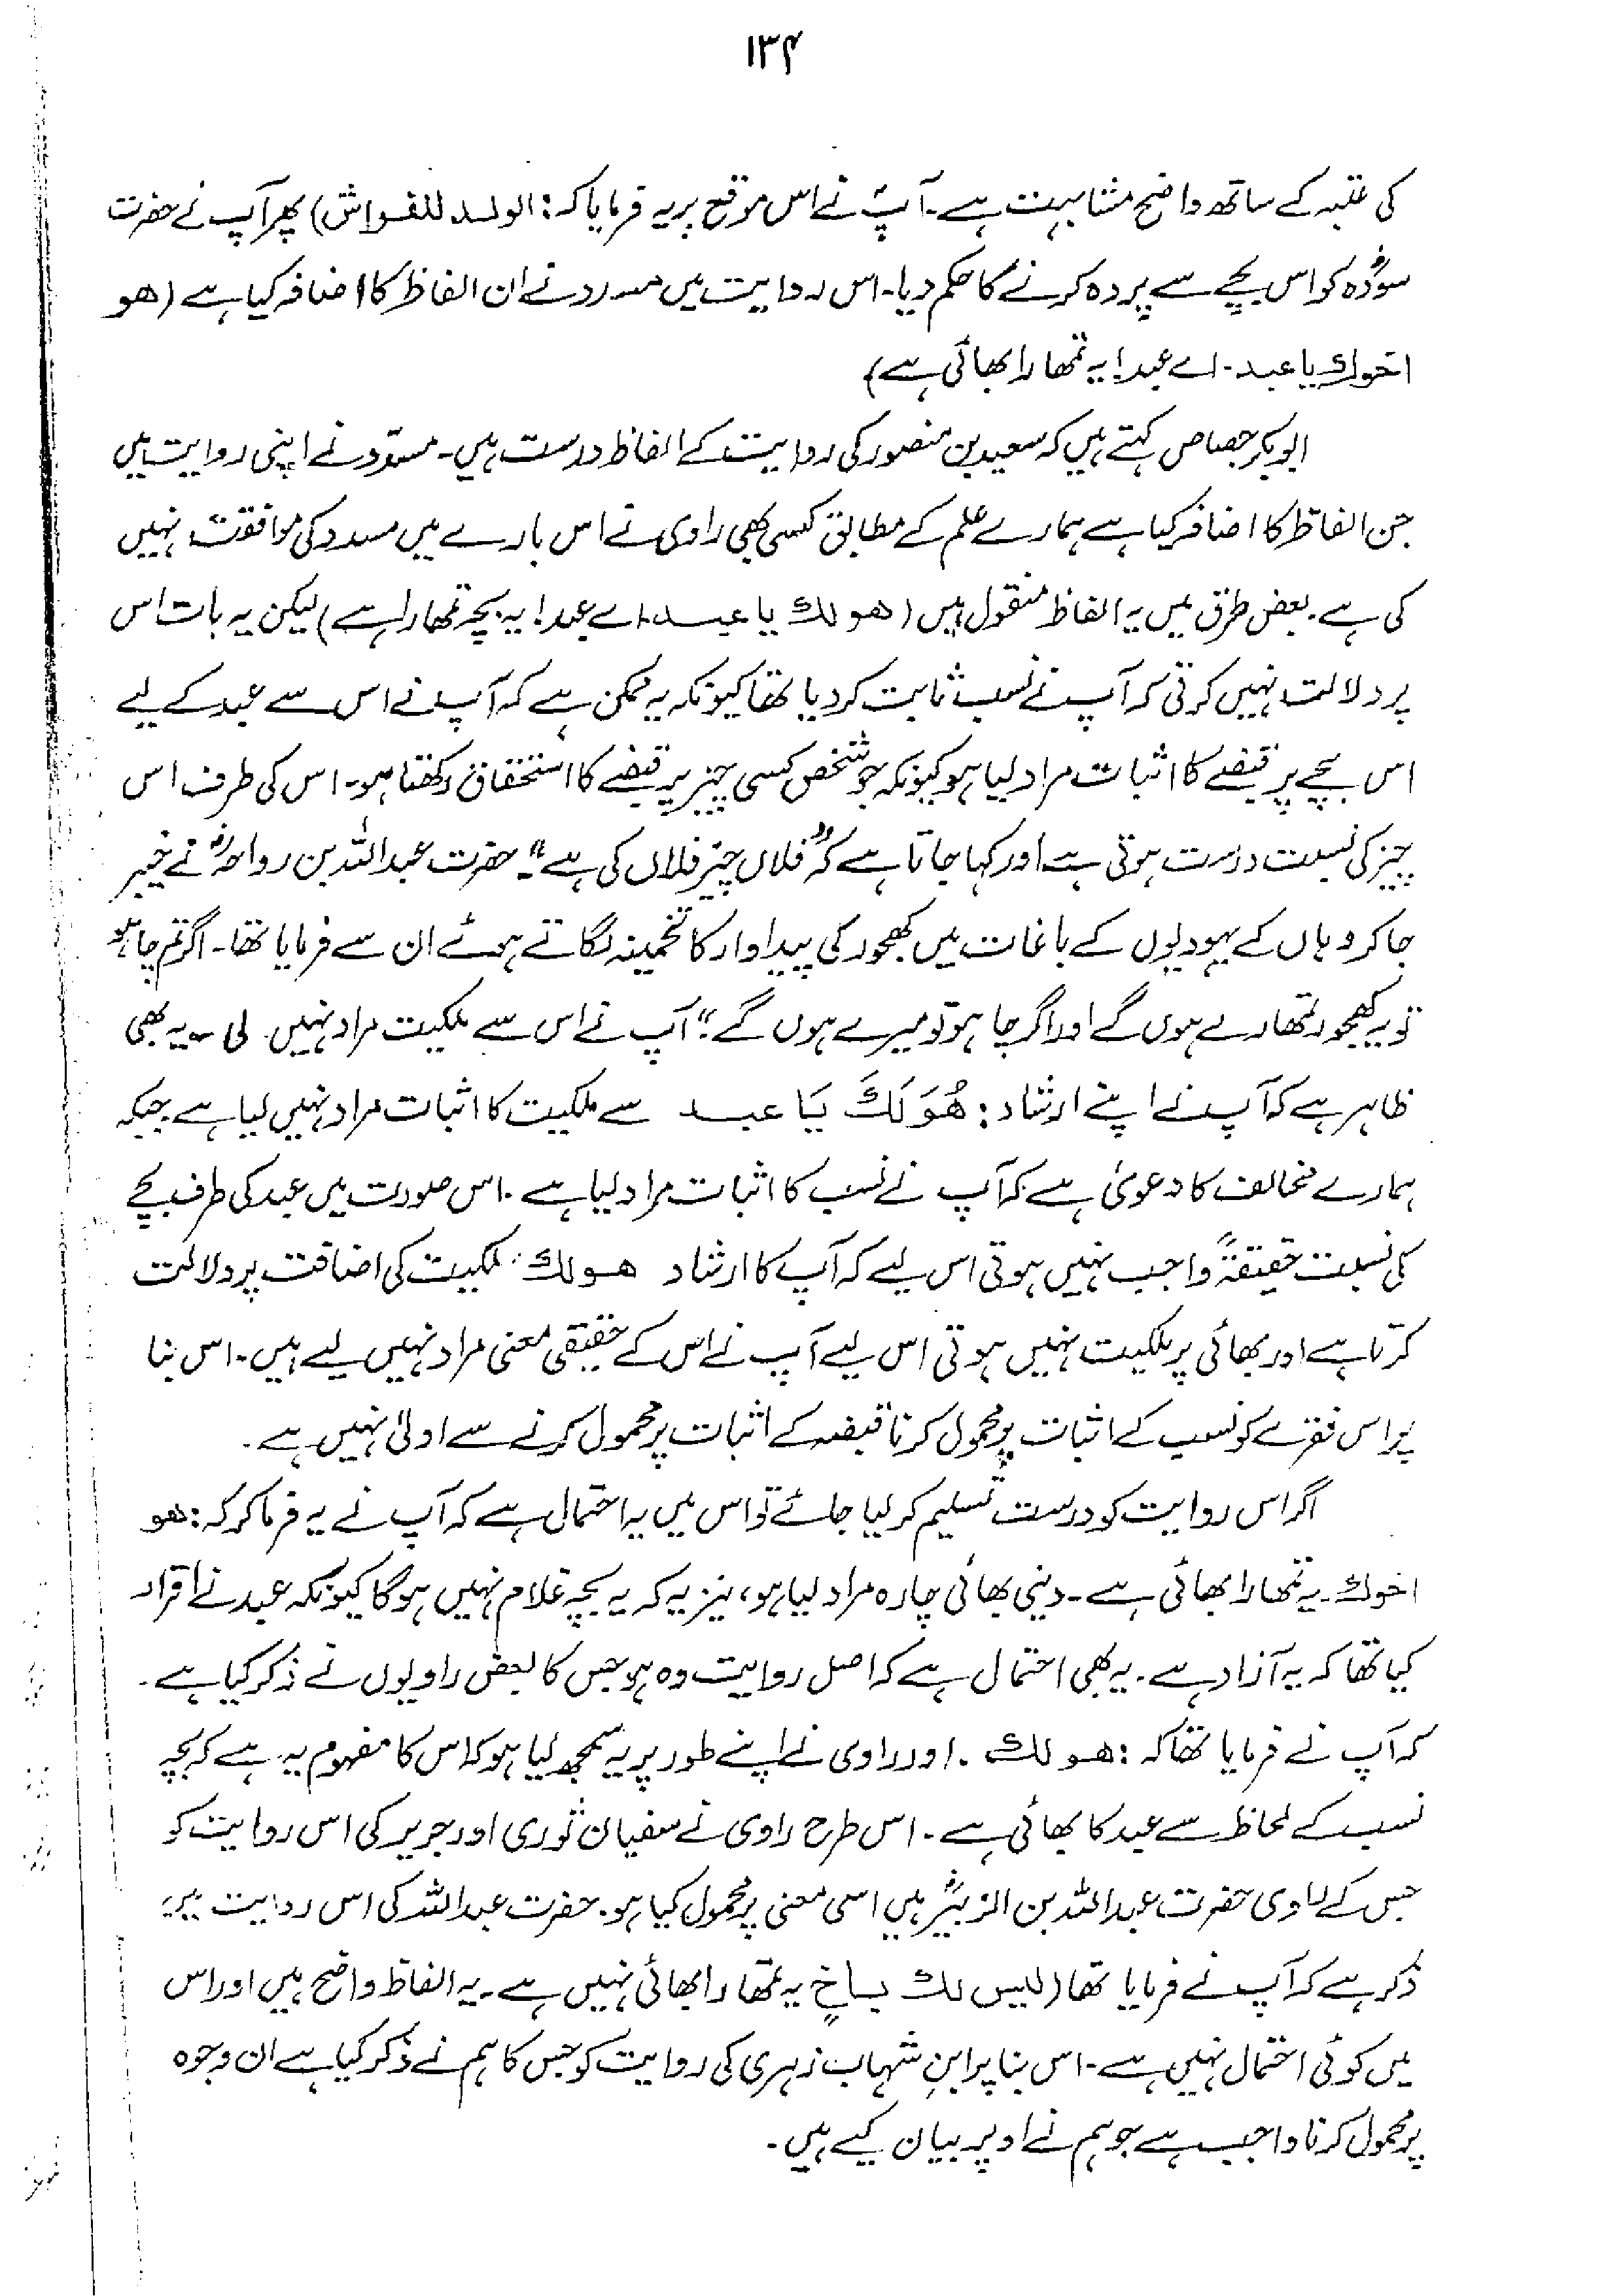 ۱۳۴
کی عتبہ کے ساتھ واضح مشابہت ہے۔ آپؐ نے اس موقع پر یہ فرمایا کہ: الولد للفراش) پھر آپ نے حضرت
سودؓہ کو اس بچے سے پردہ کرنے کا حکم دیا۔ اس روایت میں مسدد نے ان الفاظ کا اضافہ کیا ہے (ھو
اخوك یا عبد۔ اے عبد! یہ تمھارا بھائی ہے)
ابوبکر جصاص کہتے ہیں کہ سعید بن منصور کی روایت کے الفاظ درست ہیں۔ مسدّد نے اپنی روایت میں
جن الفاظ کا اضافہ کیا ہے ہمارے علم کے مطابق کسی بھی راوی نے اس بارے میں مسدد کی موافقت نہیں
کی ہے۔ بعض طرق میں یہ الفاظ منقول ہیں (ھو لك یا عبد۔ اے عبد! یہ بچہ تمھارا ہے) لیکن یہ بات اس
پر دلالت نہیں کرتی کہ آپ نے نسب ثابت کر دیا تھا کیونکہ یہ ممکن ہے کہ آپ نے اس سے عبد کے لیے
اس بچے پر قبضے کا اثبات مراد لیا ہو کیونکہ جو شخص کسی چیز پر قبضے کا استحقاق رکھتا ہو۔ اس کی طرف اس
چیز کی نسبت درست ہوتی ہے اور کہا جاتا ہے کہ "فلاں چیز فلاں کی ہے"۔ حضرت عبداللہ بن رواحہؓ نے خیبر
جا کر وہاں کے یہودیوں کے باغات میں کھجور کی پیداوار کا تخمینہ لگاتے ہوئے ان سے فرمایا تھا۔ اگر تم چاہو
تو یہ کھجور تمھارے ہوں گے اور اگر چاہو تو میرے ہوں گے"؛ آپ نے اس سے ملکیت مراد نہیں لی۔ یہ بھی
ظاہر ہے کہ آپ نے اپنے ارشاد: ھُوَ لَكَ یَا عبد سے ملکیت کا اثبات مراد نہیں لیا ہے جبکہ
ہمارے مخالف کا دعویٰ ہے کہ آپ نے نسب کا اثبات مراد لیا ہے۔ اس صورت میں عبد کی طرف بچے
کی نسبت حقیقۃً واجب نہیں ہوتی اس لیے کہ آپ کا ارشاد ھو لك ملکیت کی اضافت پر دلالت
کرتا ہے اور بھائی پر ملکیت نہیں ہوتی اس لیے آپ نے اس کے حقیقی معنی مراد نہیں لیے ہیں۔ اس بنا
پر اس فقرے کو نسب کے اثبات پر محمول کرنا قبضہ کے اثبات پر محمول کرنے سے اولیٰ نہیں ہے۔
اگر اس روایت کو درست تسلیم کر لیا جائے تو اس میں یہ احتمال ہے کہ آپ نے یہ فرما کر کہ: ھو
اخوك۔ یہ تمھارا بھائی ہے۔ دینی بھائی چارہ مراد لیا ہو، نیز یہ کہ یہ بچہ غلام نہیں ہوگا کیونکہ عبد نے اقرار
کیا تھا کہ یہ آزاد ہے۔ یہ بھی احتمال ہے کہ اصل روایت وہ ہو جس کا بعض راویوں نے ذکر کیا ہے۔
کہ آپ نے فرمایا تھا کہ: ھو لك۔ اور راوی نے اپنے طور پر یہ سمجھ لیا ہو کہ اس کا مفہوم یہ ہے کہ بچہ
نسب کے لحاظ سے عبد کا بھائی ہے۔ اس طرح راوی نے سفیان ثوری اور جریر کی اس روایت کو
جس کے راوی حضرت عبداللہ بن الزبیرؓ ہیں اسی معنی پر محمول کیا ہو۔ حضرت عبداللہ کی اس روایت میں
ذکر ہے کہ آپ نے فرمایا تھا (لیس لك باخٍ یہ تمھارا بھائی نہیں ہے۔ یہ الفاظ واضح ہیں اور اس
میں کوئی احتمال نہیں ہے۔ اس بنا پر ابنِ شہاب زہری کی روایت کو جس کا ہم نے ذکر کیا ہے ان وجوہ
پر محمول کرنا واجب ہے جو ہم نے اوپر بیان کیے ہیں۔